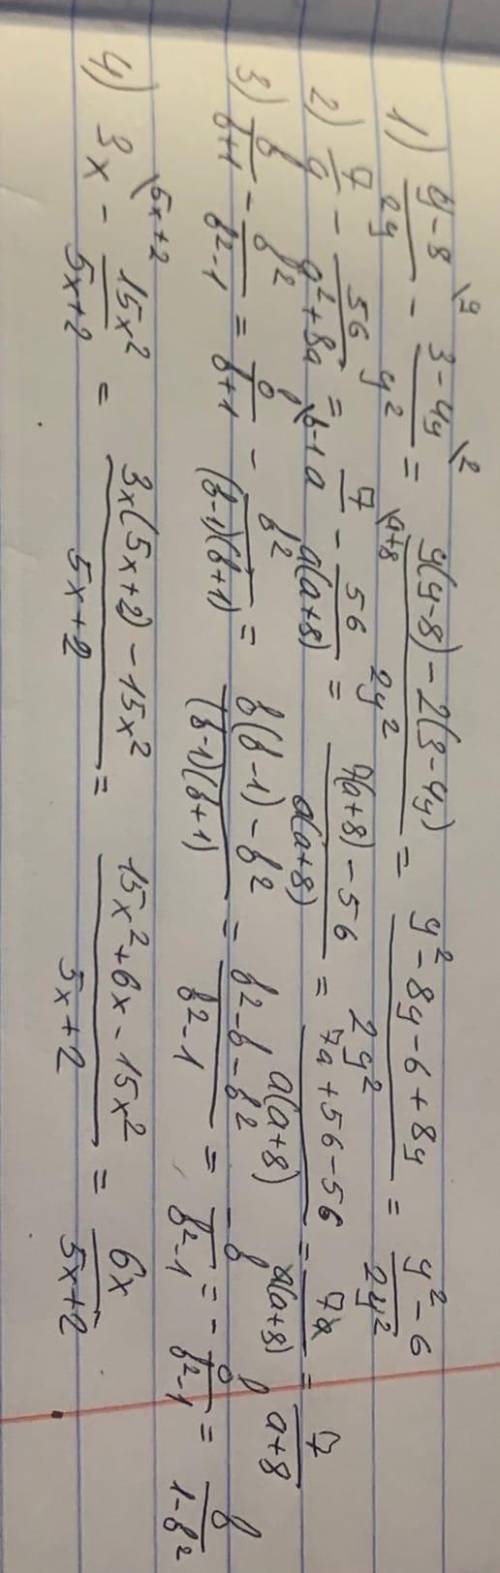 1) \frac{y-8}{2y}^{\backslash y} - \frac{3-4y}{y^2}^{\backslash 2} = \frac{y(y-8)-2(3-4y)}{2y^2} = \frac{y^2-8y-6+8y}{2y^2} = \frac{y^2-6}{2y^2}
2) \frac{7}{a} - \frac{56}{a^2+8a} = \frac{7}{a}^{\backslash a+8} - \frac{56}{a(a+8)} = \frac{7(a+8)-56}{a(a+8)} = \frac{7a+56-56}{a(a+8)} = \frac{7a}{a(a+8)} = \frac{7}{a+8}
3) \frac{b}{b+1} - \frac{b^2}{b^2-1} = \frac{b}{b+1}^{\backslash b-1} - \frac{b^2}{(b-1)(b+1)} = \frac{b(b-1)-b^2}{(b-1)(b+1)} = \frac{b^2-b-b^2}{b^2-1} = \frac{-b}{b^2-1} = -\frac{b}{b^2-1} = \frac{b}{1-b^2}
4) 3x^{\backslash 5x+2} - \frac{15x^2}{5x+2} = \frac{3x(5x+2)-15x^2}{5x+2} = \frac{15x^2+6x-15x^2}{5x+2} = \frac{6x}{5x+2}